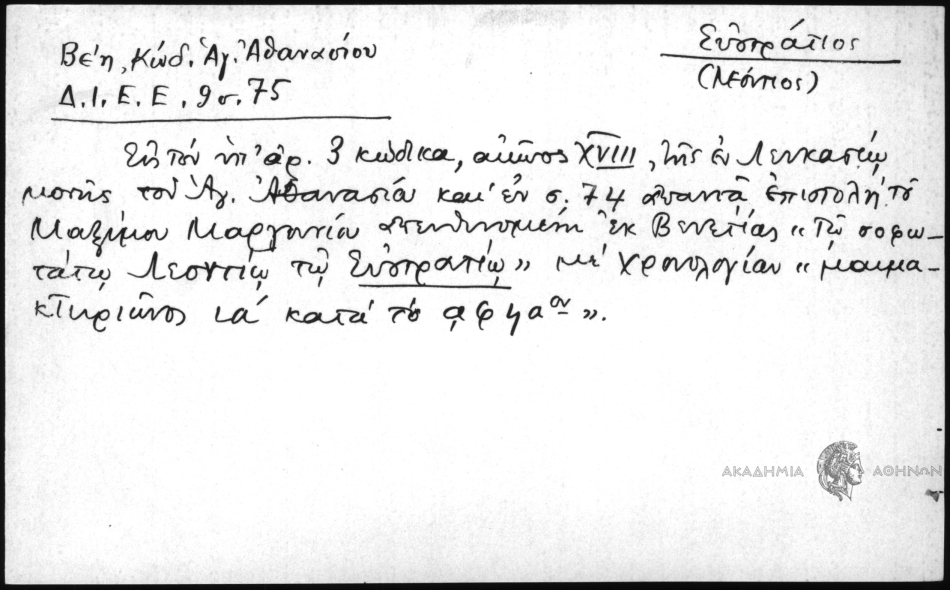 Βέη, Κώδ. Ἁγ. Ἀθανασίου
Δ.Ι.Ε.Ε. 9 σ. 75
Εὐστράτιος
(Λεόντιος)
Εἰς τὸν ὑπ' ἀρ. 3 κώδικα, αἰῶνος XVIII, τῆς ἐν Λευκασίῳ
μονῆς τοῦ Ἁγ. Ἀθανασίου καὶ ἐν σ. 74 ἀπαντᾷ ἐπιστολὴ τοῦ
Μαξίμου Μαργουνίου ἀπευθυνομένη ἐκ Βενετίας «Τῷ σοφω-
τάτῳ Λεοντίῳ τῷ Εὐστρατίῳ» μὲ χρονολογίαν «μαιμα-
κτηριῶνος ιά κατὰ τὸ αφηα<sup>ον</sup>».
ΑΚΑΔΗΜΙΑ ΑΘΗΝΩΝ